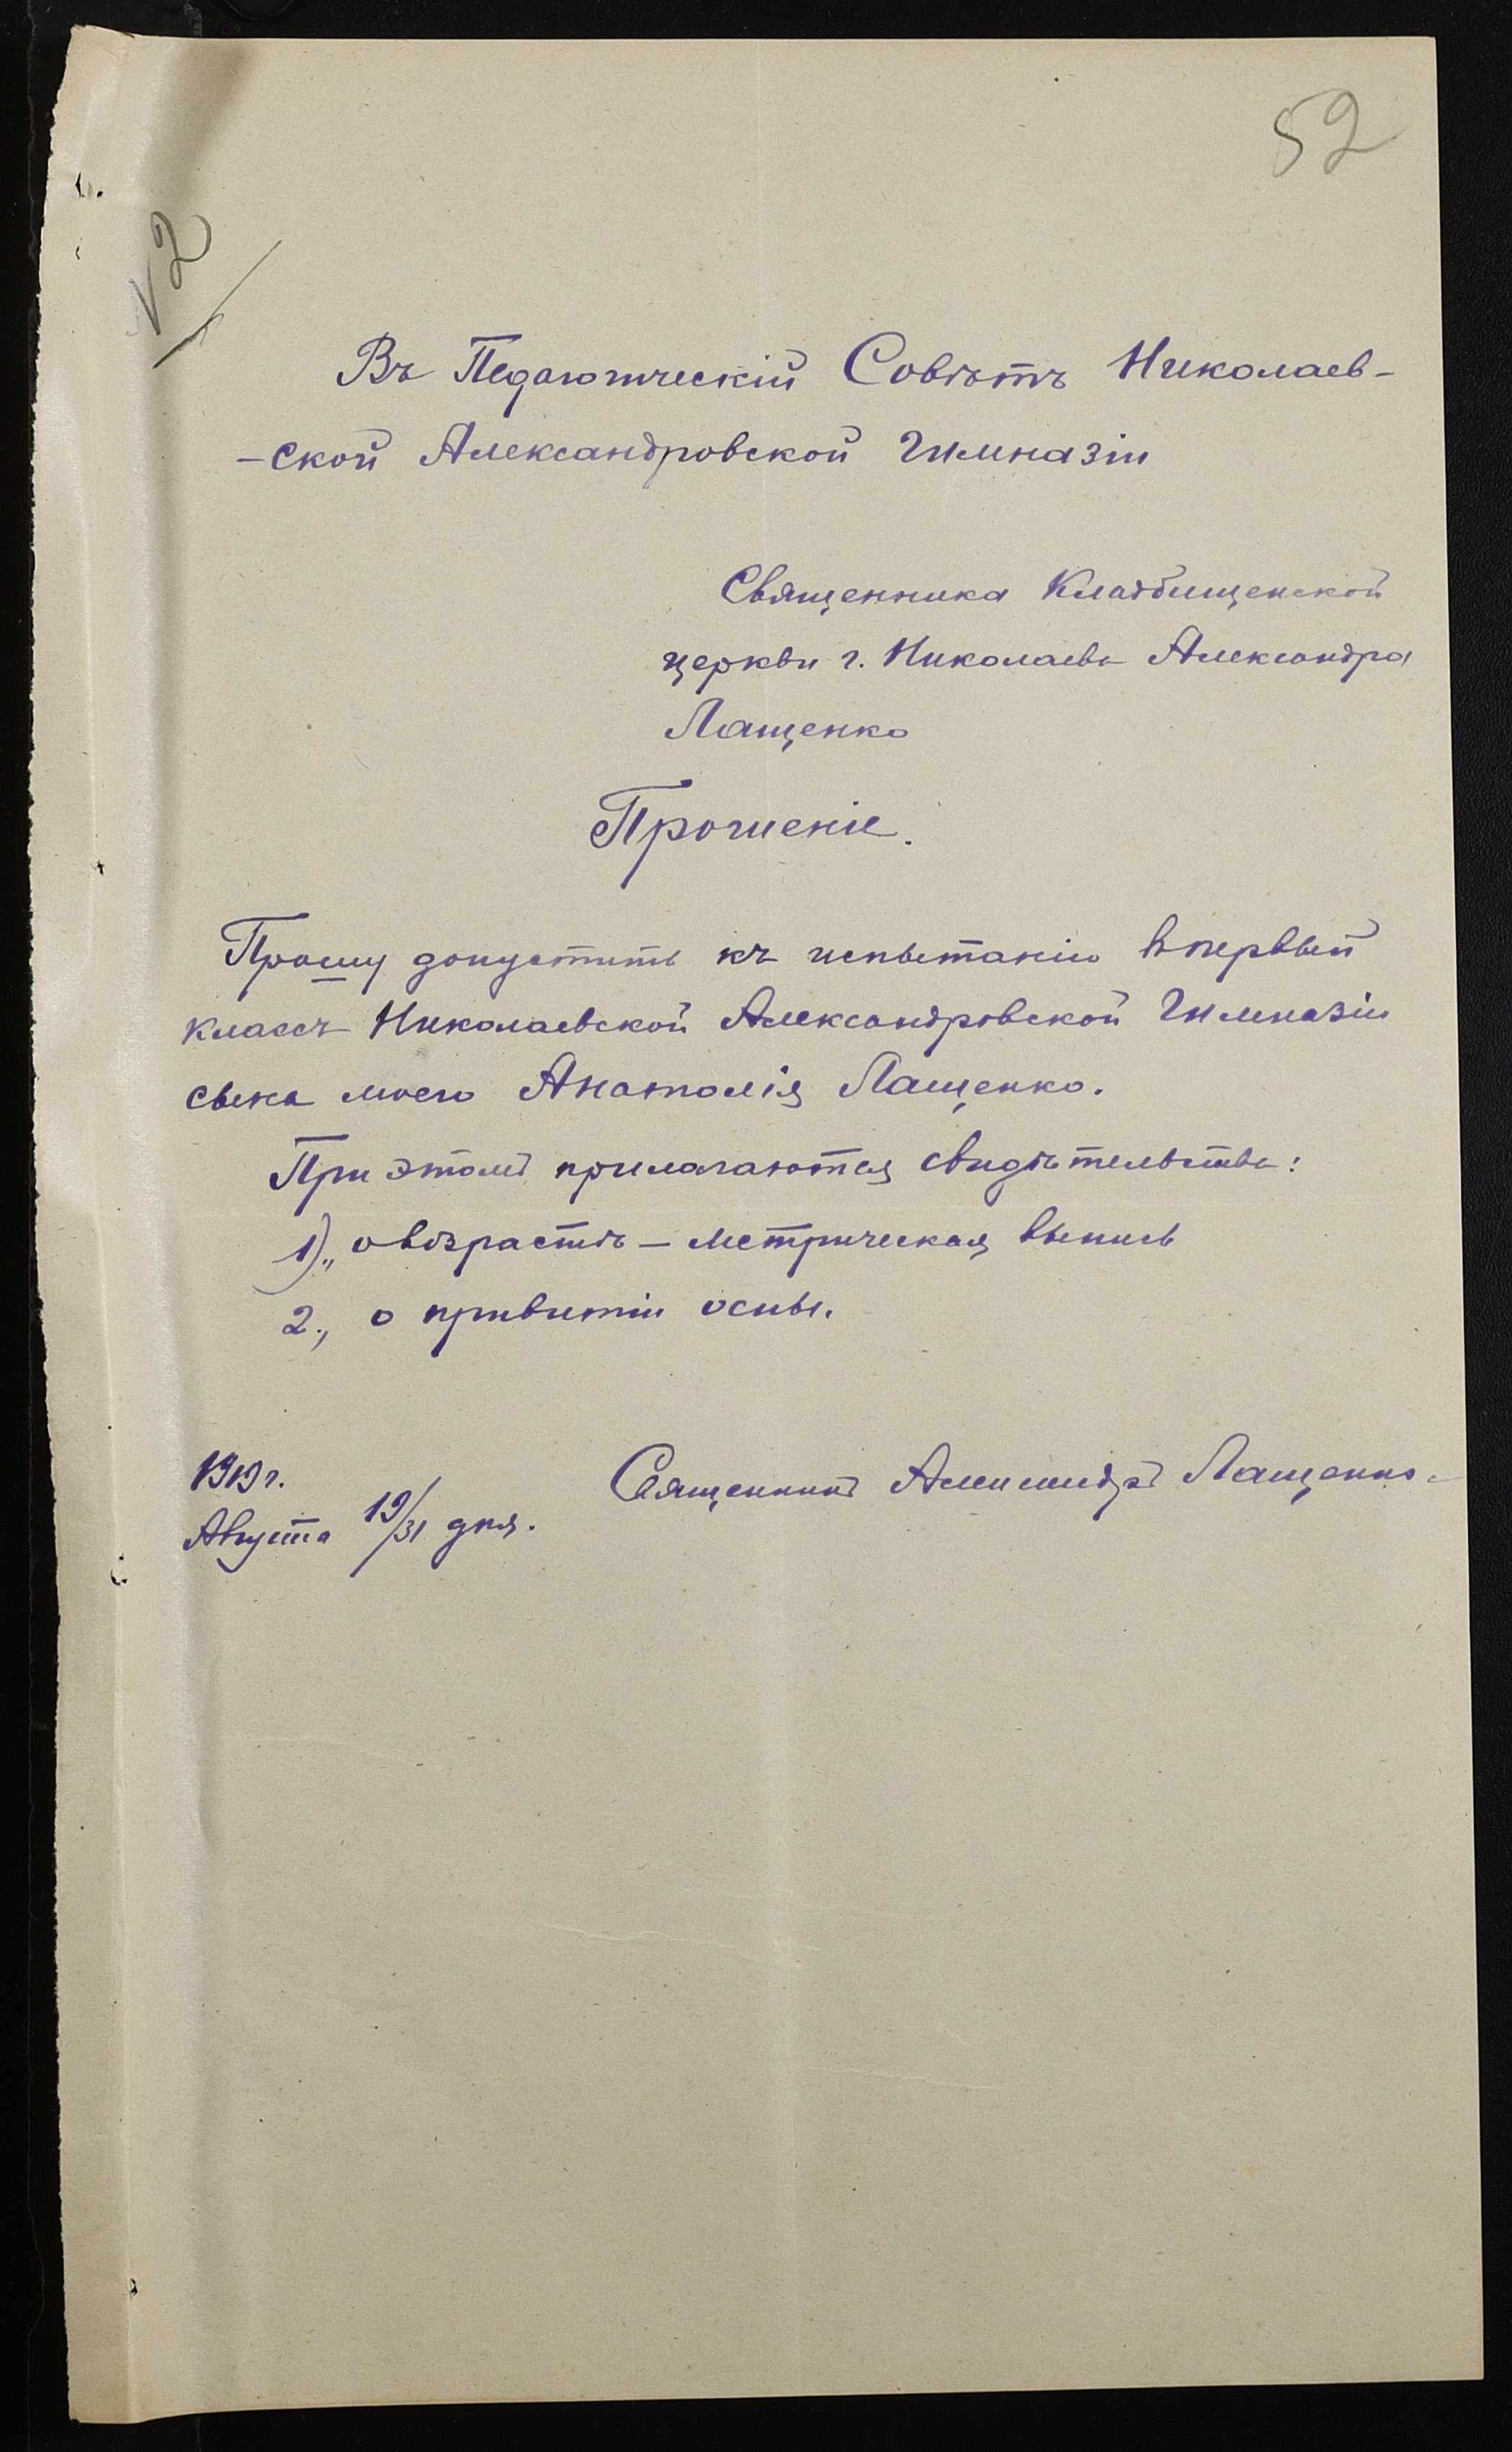 52
12
Въ Педагогическій Совѣтъ Николаев-
-ской Александровской Гимназіи
Священника Кладбищенской
церкви г. Николаева Александра
Лащенко
Прошеніе.
Прошу допустить къ испытанію въ первый
классъ Николаевской Александровской Гимназіи
сына моего Анатолія Лащенко.
При этомъ прилагаются свидѣтельства:
1)„ о возрастѣ – метрическая выпись
2., о привитіи оспы.
1919 г.
Августа 19/31 дня.
Священникъ Александръ Лащенко.